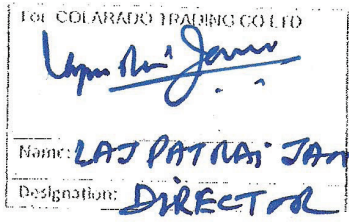 For COLARADO TRADING CO LTD
Name: LAJ PATRAI JAIN
Designation: DIRECTOR